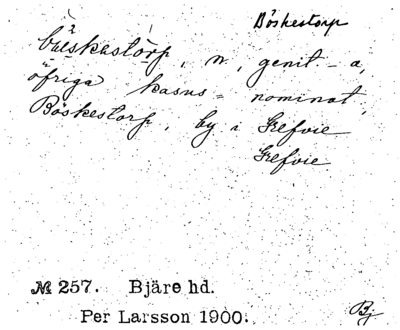 Böskestorp
bæskestorp, n., genit -a,
öfriga kasus = nominat,
Böskestorp, by i Grefvie
Grefvie
№ 257. Bjäre hd.
Per Larsson 1900.
Bj